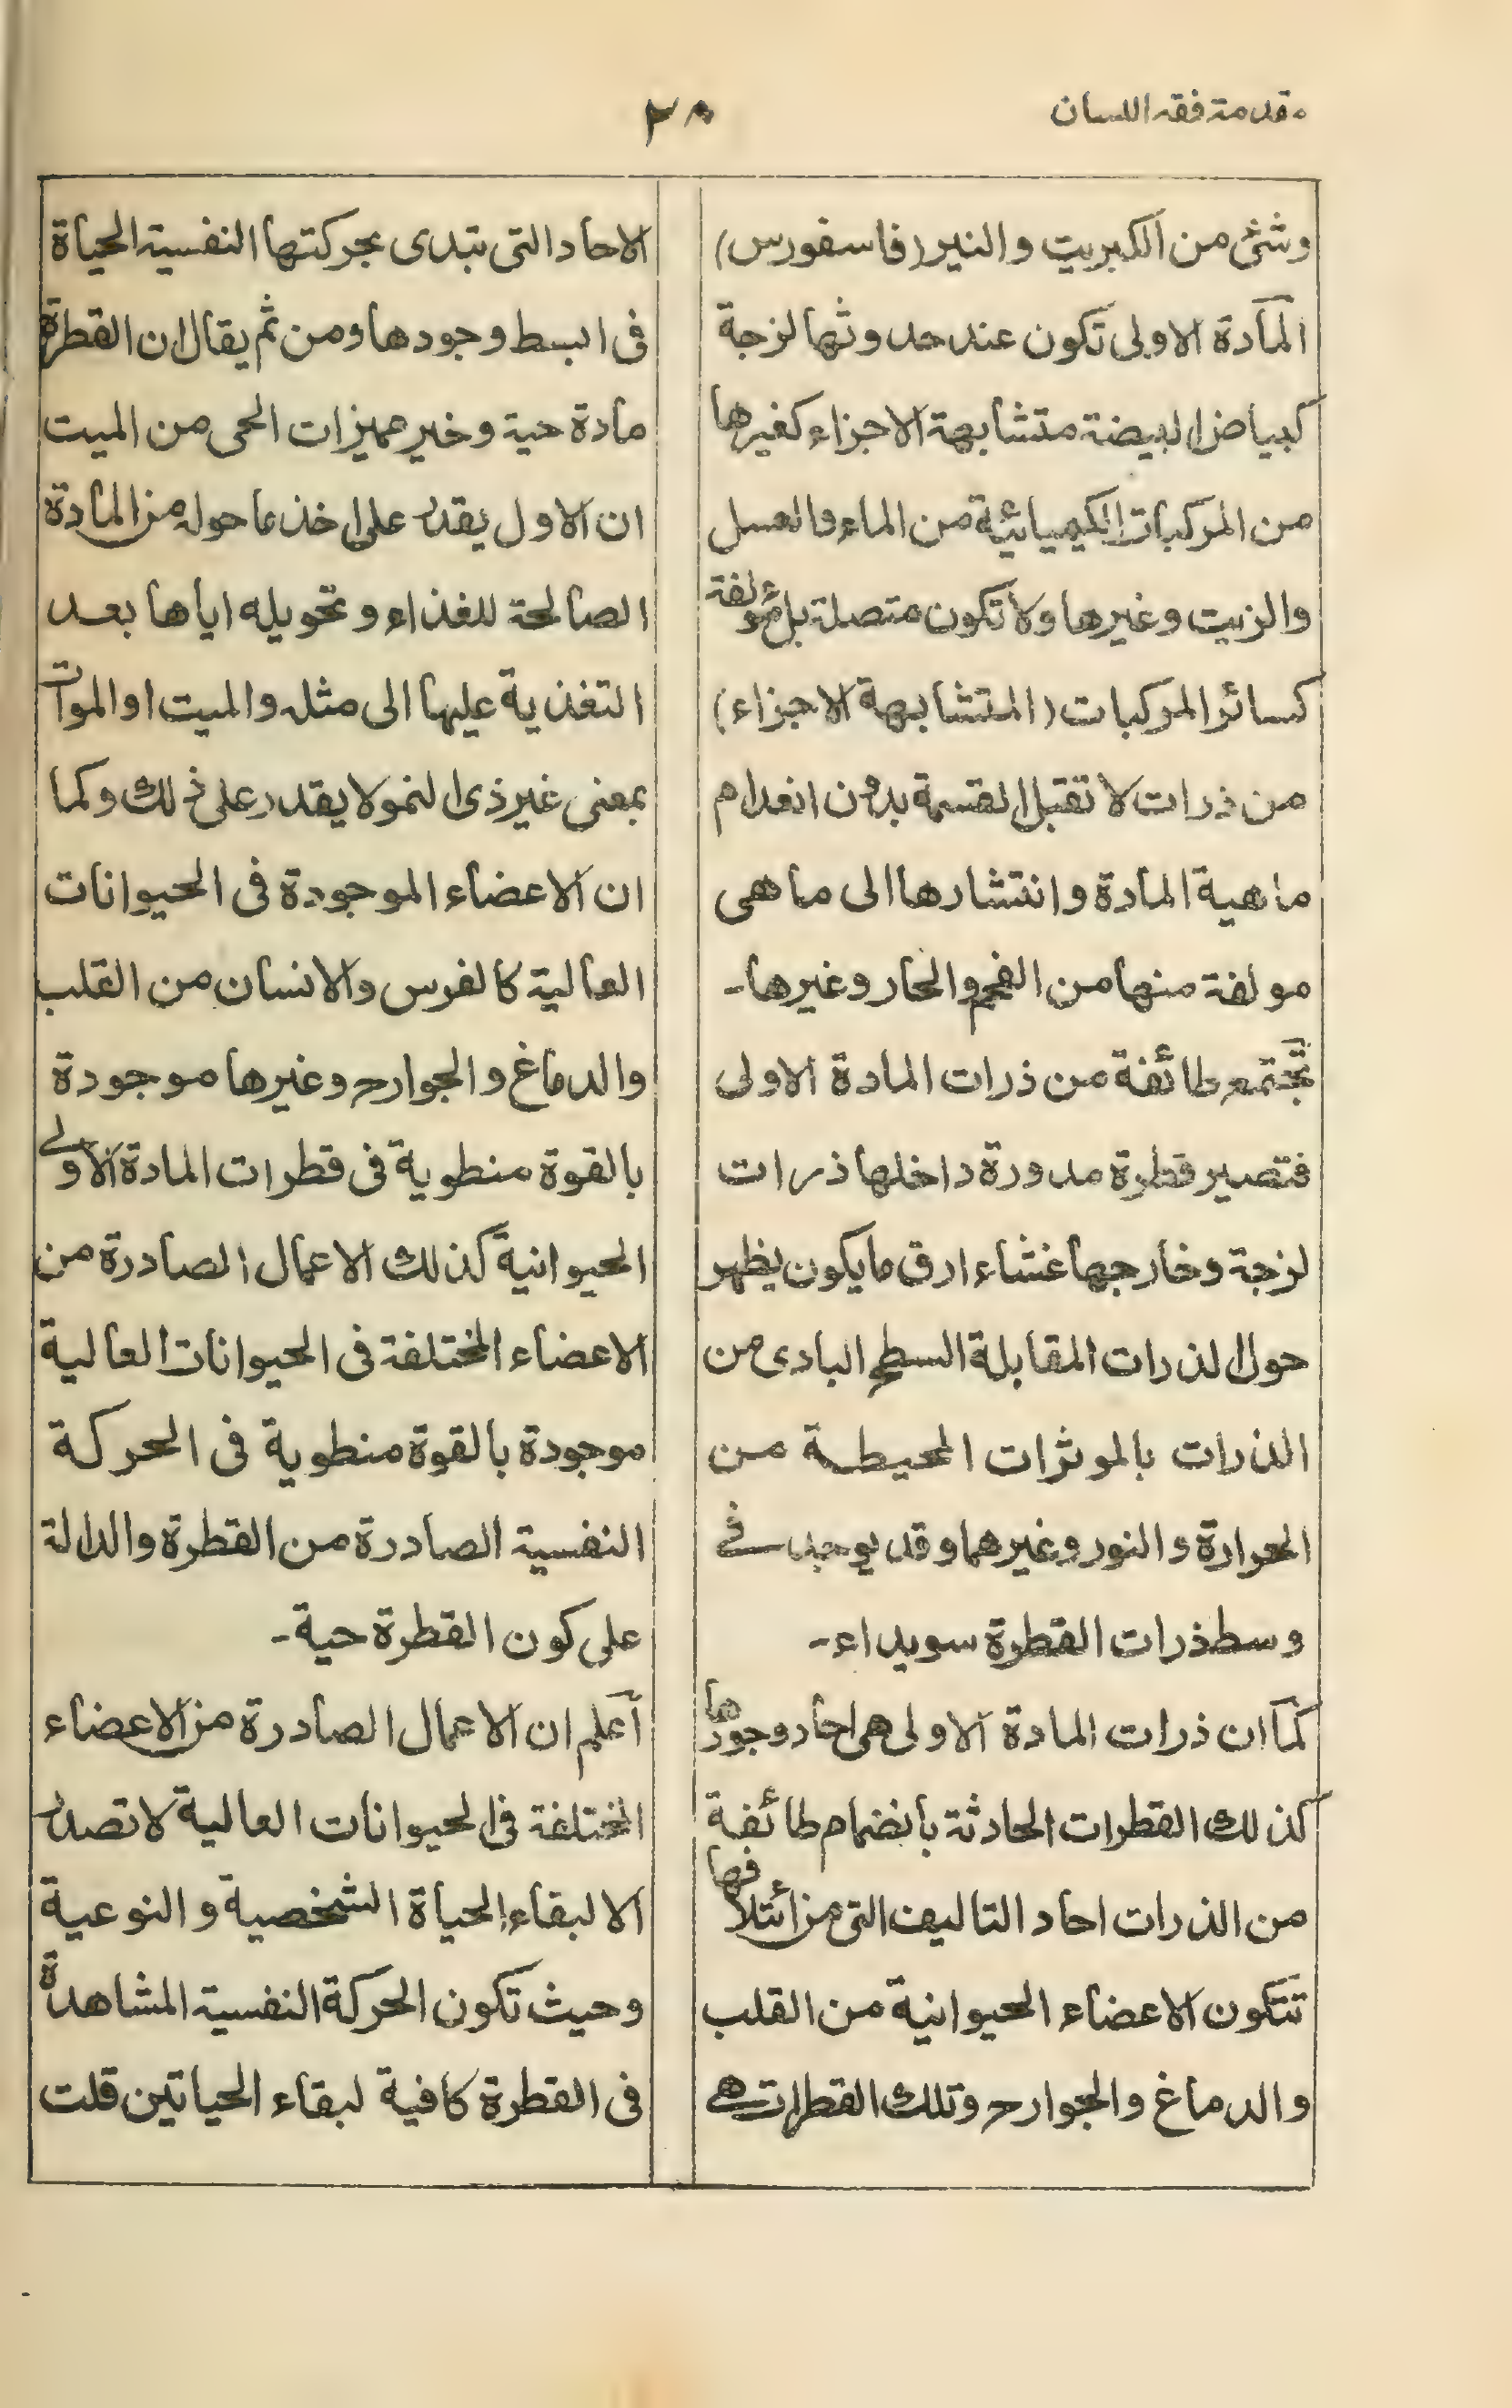 مقدمة فقه اللسان
٢٨
وشئ من الكبريت والنير (فاسفورس)
المآدة الاولى تكون عند حدوثها لزجة
كبياض البيضة متشابهة الاجزاء كغيرها
من المركبات الكيميائية من الماء والعسل
والزيت وغيرها ولا تكون متصلة بل مؤلفة
كسائر المركبات (المتشابهة الاجزاء)
من ذرات لا تقبل القسمة بدون انعدام
ماهية المادة وانتشارها الى ما هى
مولفة منها من الفحم والحار وغيرها-
تجتمع طائفة من ذرات المادة الاولى
فتصير قطرة مدورة داخلها ذرات
لزجة وخارجها غشاء ارق ما يكون يظهر
حول الذرات المقابلة السطح البادى من
الذرات بالموثرات المحيطة من
الحرارة والنور وغيرهما وقد يوجد فى
وسط ذرات القطرة سويداء-
كمآ ان ذرات المادة الاولى هى احاد وجودها
كذلك القطرات الحادثة بانضمام طائفة
من الذرات احاد التاليف التى من ائتلافها
تتكون الاعضاء الحيوانية من القلب
والدماغ والجوارح وتلك القطرات هى
الاحاد التى تبتدى بحركتها النفسية الحياة
فى ابسط وجودها ومن ثم يقال ان القطرة
مادة حية وخير مميزات الحى من الميت
ان الاول يقدر على اخذ ما حوله من المادة
الصالحة للغذاء وتحويله اياها بعد
التغذية عليها الى مثله والميت او الموات
بمعنى غير ذى النمو لا يقدر على ذلك وكما
ان الاعضاء الموجودة فى الحيوانات
العالية كالفرس والانسان من القلب
والدماغ والجوارح وغيرها موجودة
بالقوة منطوية فى قطرات المادة الاولى
الحيوانية كذلك الاعمال الصادرة من
الاعضاء المختلفة فى الحيوانات العالية
موجودة بالقوة منطوية فى الحركة
النفسية الصادرة من القطرة والدالة
على كون القطرة حية-
أعلم ان الاعمال الصادرة من الاعضاء
المختلفة فى الحيوانات العالية لا تصدر
الا لبقاء الحياة الشخصية والنوعية
وحيث تكون الحركة النفسية المشاهدة
فى القطرة كافية لبقاء الحياتين قلت